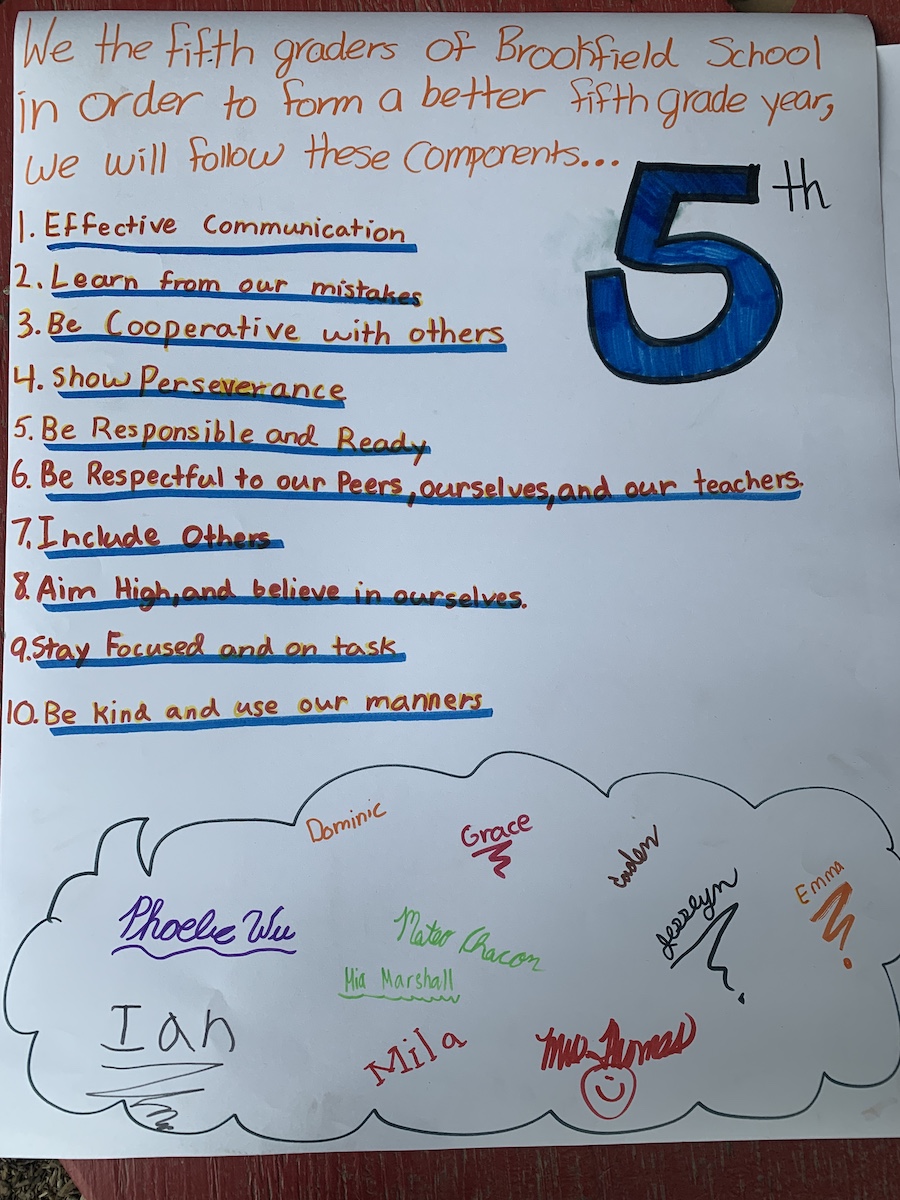 We the fifth graders of Brookfield School
in order to form a better fifth grade year,
we will follow these Components...
5th
1. Effective Communication
2. Learn from our mistakes
3. Be Cooperative with others
4. Show Perseverance
5. Be Responsible and Ready
6. Be Respectful to our Peers, ourselves, and our teachers.
7. Include Others
8. Aim High, and believe in ourselves.
9. Stay Focused and on task
10. Be kind and use our manners
Dominic
Grace
Caden
Emma
Phoebe Wu
Mateo Chacon
Jesselyn
Mia Marshall
Ian
Mila
Mrs. Thomas